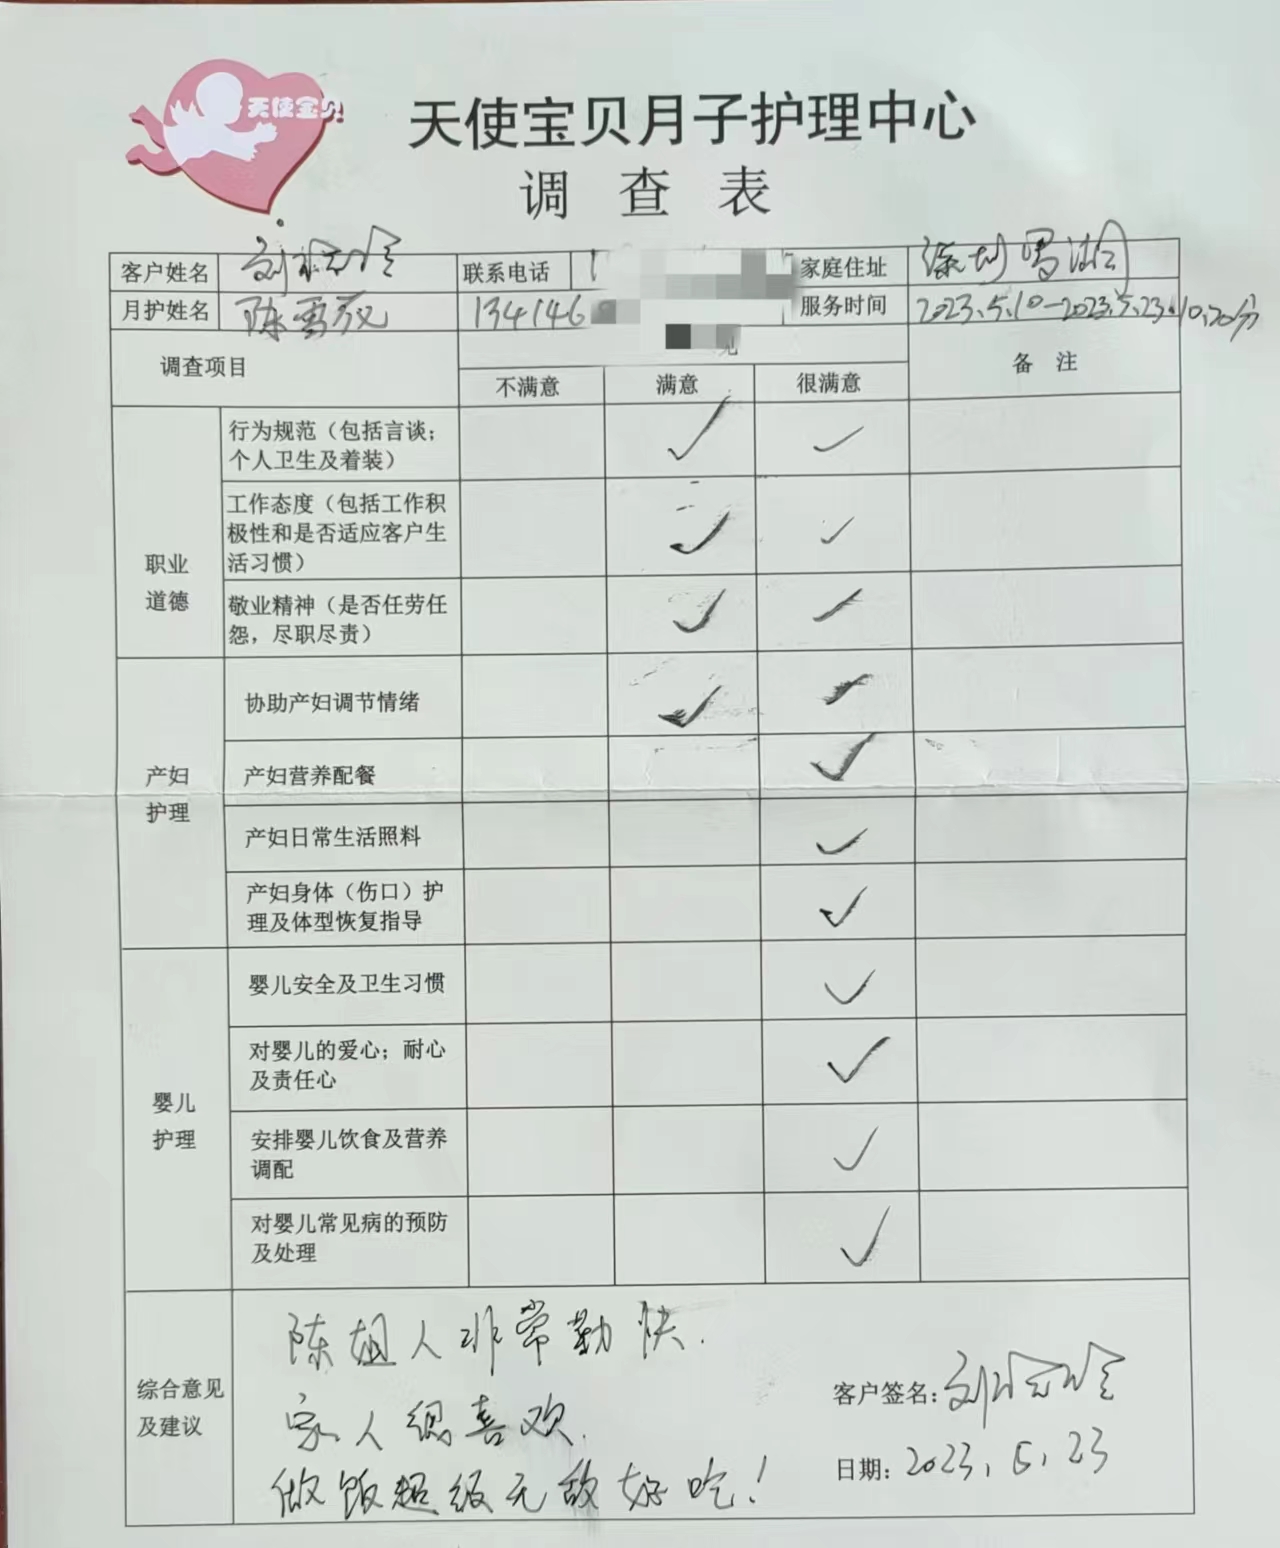 天使宝贝
天使宝贝月子护理中心
调 查 表
客户姓名 刘 联系电话 1 家庭住址 深圳罗湖
月护姓名 陈雪 134146 服务时间 2023.5.10-2023.5.23.10.20分
元
调查项目 不满意 满意 很满意 备 注
职业
道德
行为规范（包括言谈；
个人卫生及着装） ✓ ✓
工作态度（包括工作积
极性和是否适应客户生
活习惯） ✓ ✓
敬业精神（是否任劳任
怨，尽职尽责） ✓ ✓
产妇
护理
协助产妇调节情绪 ✓ ✓
产妇营养配餐 ✓
产妇日常生活照料 ✓
产妇身体（伤口）护
理及体型恢复指导 ✓
婴儿
护理
婴儿安全及卫生习惯 ✓
对婴儿的爱心；耐心
及责任心 ✓
安排婴儿饮食及营养
调配 ✓
对婴儿常见病的预防
及处理 ✓
综合意见
及建议
陈姐人非常勤快.
家人很喜欢.
做饭超级无敌好吃！
客户签名: 刘
日期: 2023.5.23